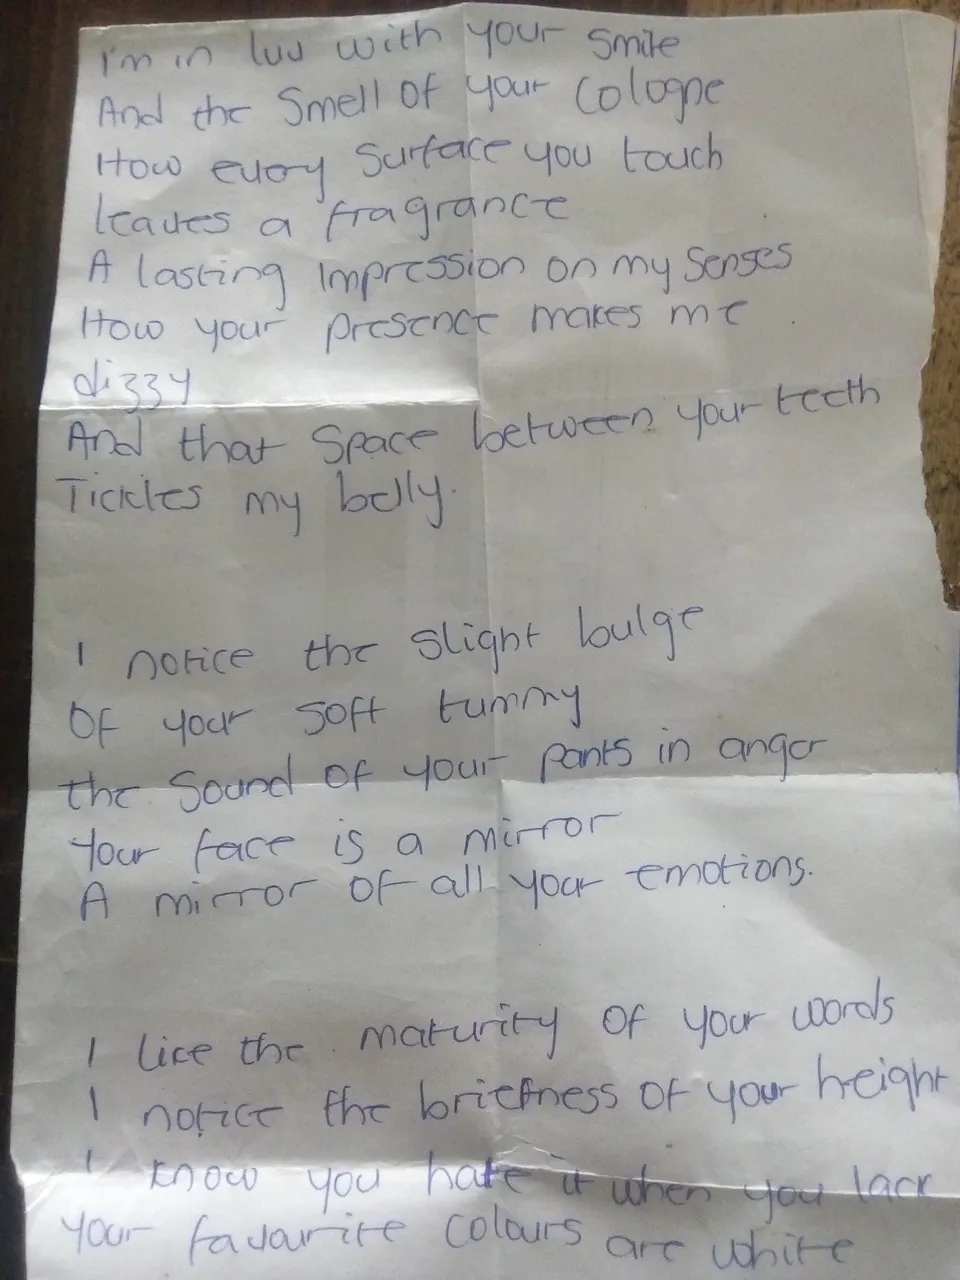 I'm in luv with your smile
And the smell of your cologne
How every surface you touch
leaves a fragrance
A lasting impression on my senses
How your presence makes me
dizzy
And that space between your teeth
Tickles my belly.
I notice the slight bulge
Of your soft tummy
the sound of your pants in anger
Your face is a mirror
A mirror of all your emotions.
I like the maturity of your words
I notice the briefness of your height
I know you hate it when you lack
your favourite colours are white